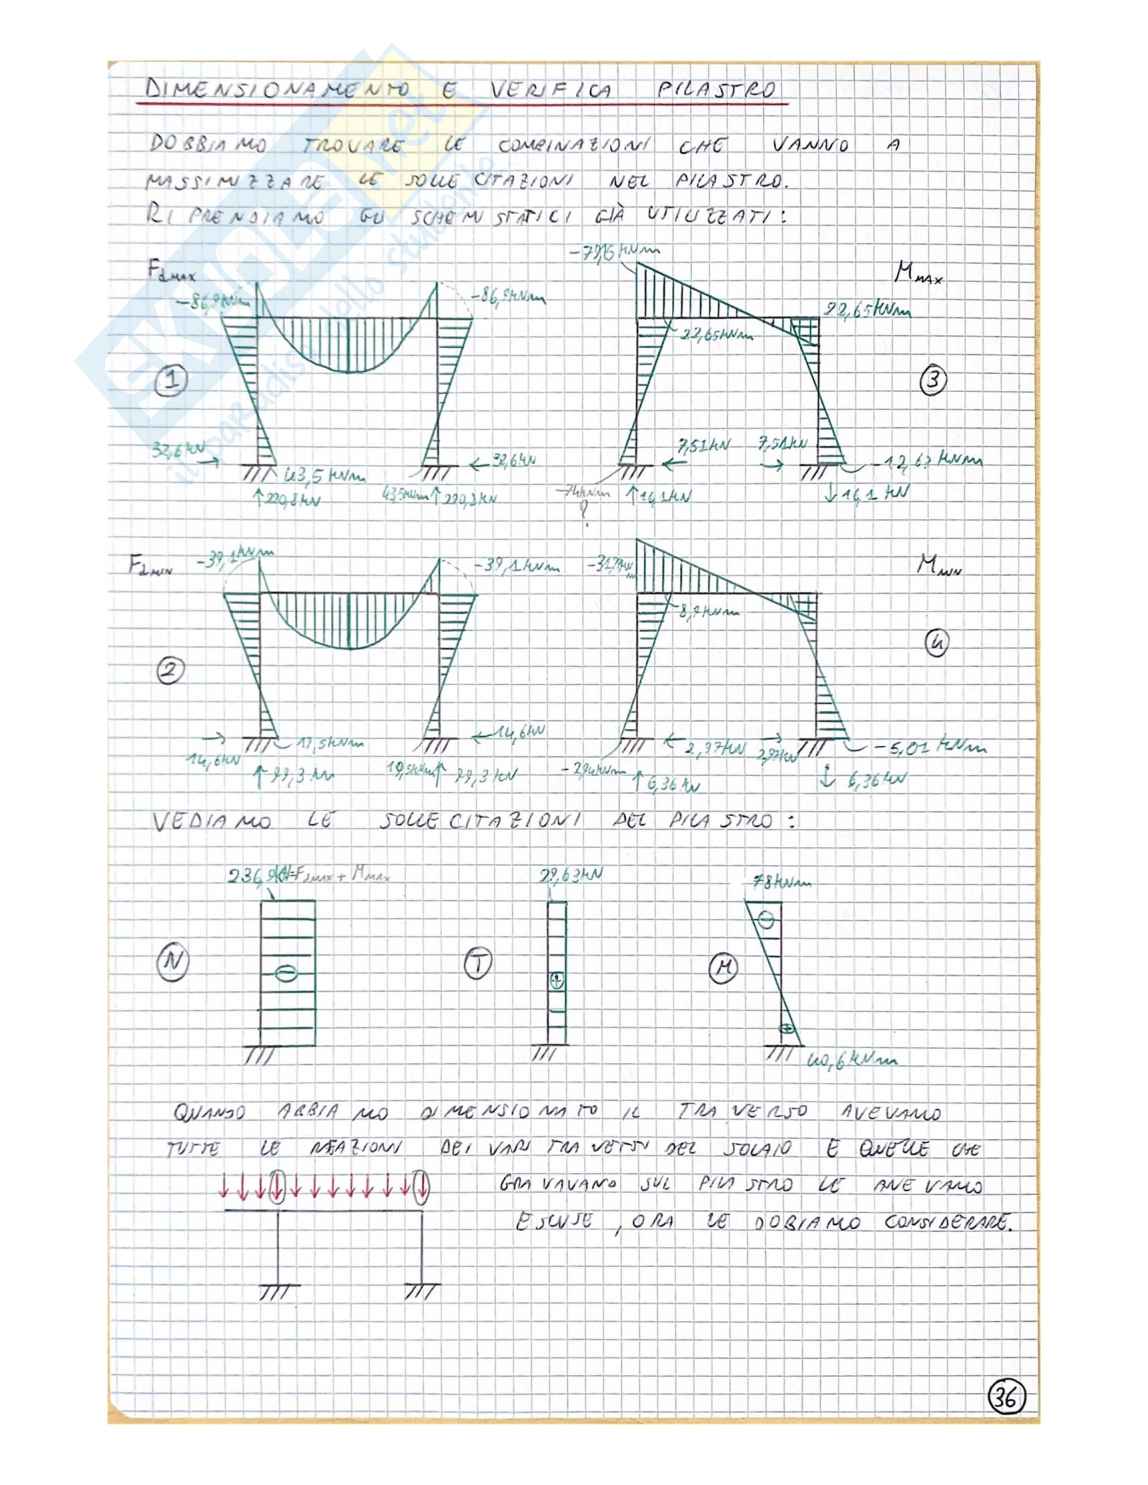 DIMENSIONAMENTO E VERIFICA PILASTRO
DOBBIAMO TROVARE LE COMBINAZIONI CHE VANNO A
MASSIMIZZARE LE SOLLECITAZIONI NEL PILASTRO.
RIPRENDIAMO GLI SCHEMI STATICI GIÀ UTILIZZATI:
F2MAX
-86,9kNm
-86,9kNm
1
32,6kN
32,6kN
43,5kNm
220,8kN
MMAX
22,65kNm
22,65kNm
3
7,51kN
7,51kN
-12,67kNm
16,1kN
16,1kN
?
F2MIN
-39,1kNm
-39,1kNm
2
14,6kN
14,6kN
99,3kN
99,3kN
MMIN
8,9kNm
4
2,97kN
2,97kN
-5,01kNm
6,36kN
6,36kN
VEDIAMO LE SOLLECITAZIONI DEL PILASTRO:
F2MAX + MMAX
N
29,63kN
T
78kNm
M
40,6kNm
QUANDO ABBIAMO DIMENSIONATO IL TRAVERSO AVEVAMO
TUTTE LE REAZIONI DEI VARI TRAVETTI DEL SOLAIO E QUELLE CHE
GRAVAVANO SUL PILASTRO LE AVEVAMO
ESCLUSE, ORA LE DOBIAMO CONSIDERARE.
36